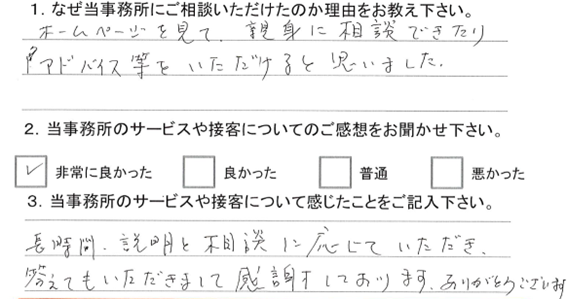 1. なぜ当事務所にご相談いただけたのか理由をお教え下さい。
ホームページを見て、親身に相談できたり
アドバイス等をいただけると思いました。
2. 当事務所のサービスや接客についてのご感想をお聞かせ下さい。
✓ 非常に良かった 良かった 普通 悪かった
3. 当事務所のサービスや接客について感じたことをご記入下さい。
長時間、説明と相談に応じていただき、
答えてもいただきまして感謝すしております。ありがとうございます